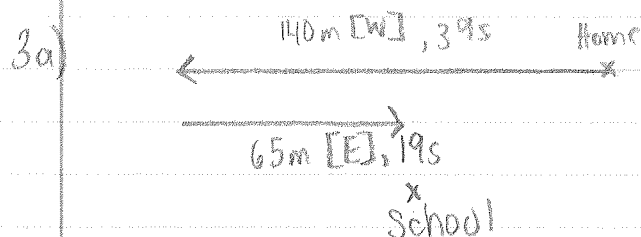 3a)
140m [W], 39s
Home
x
65m [E], 19s
x
School